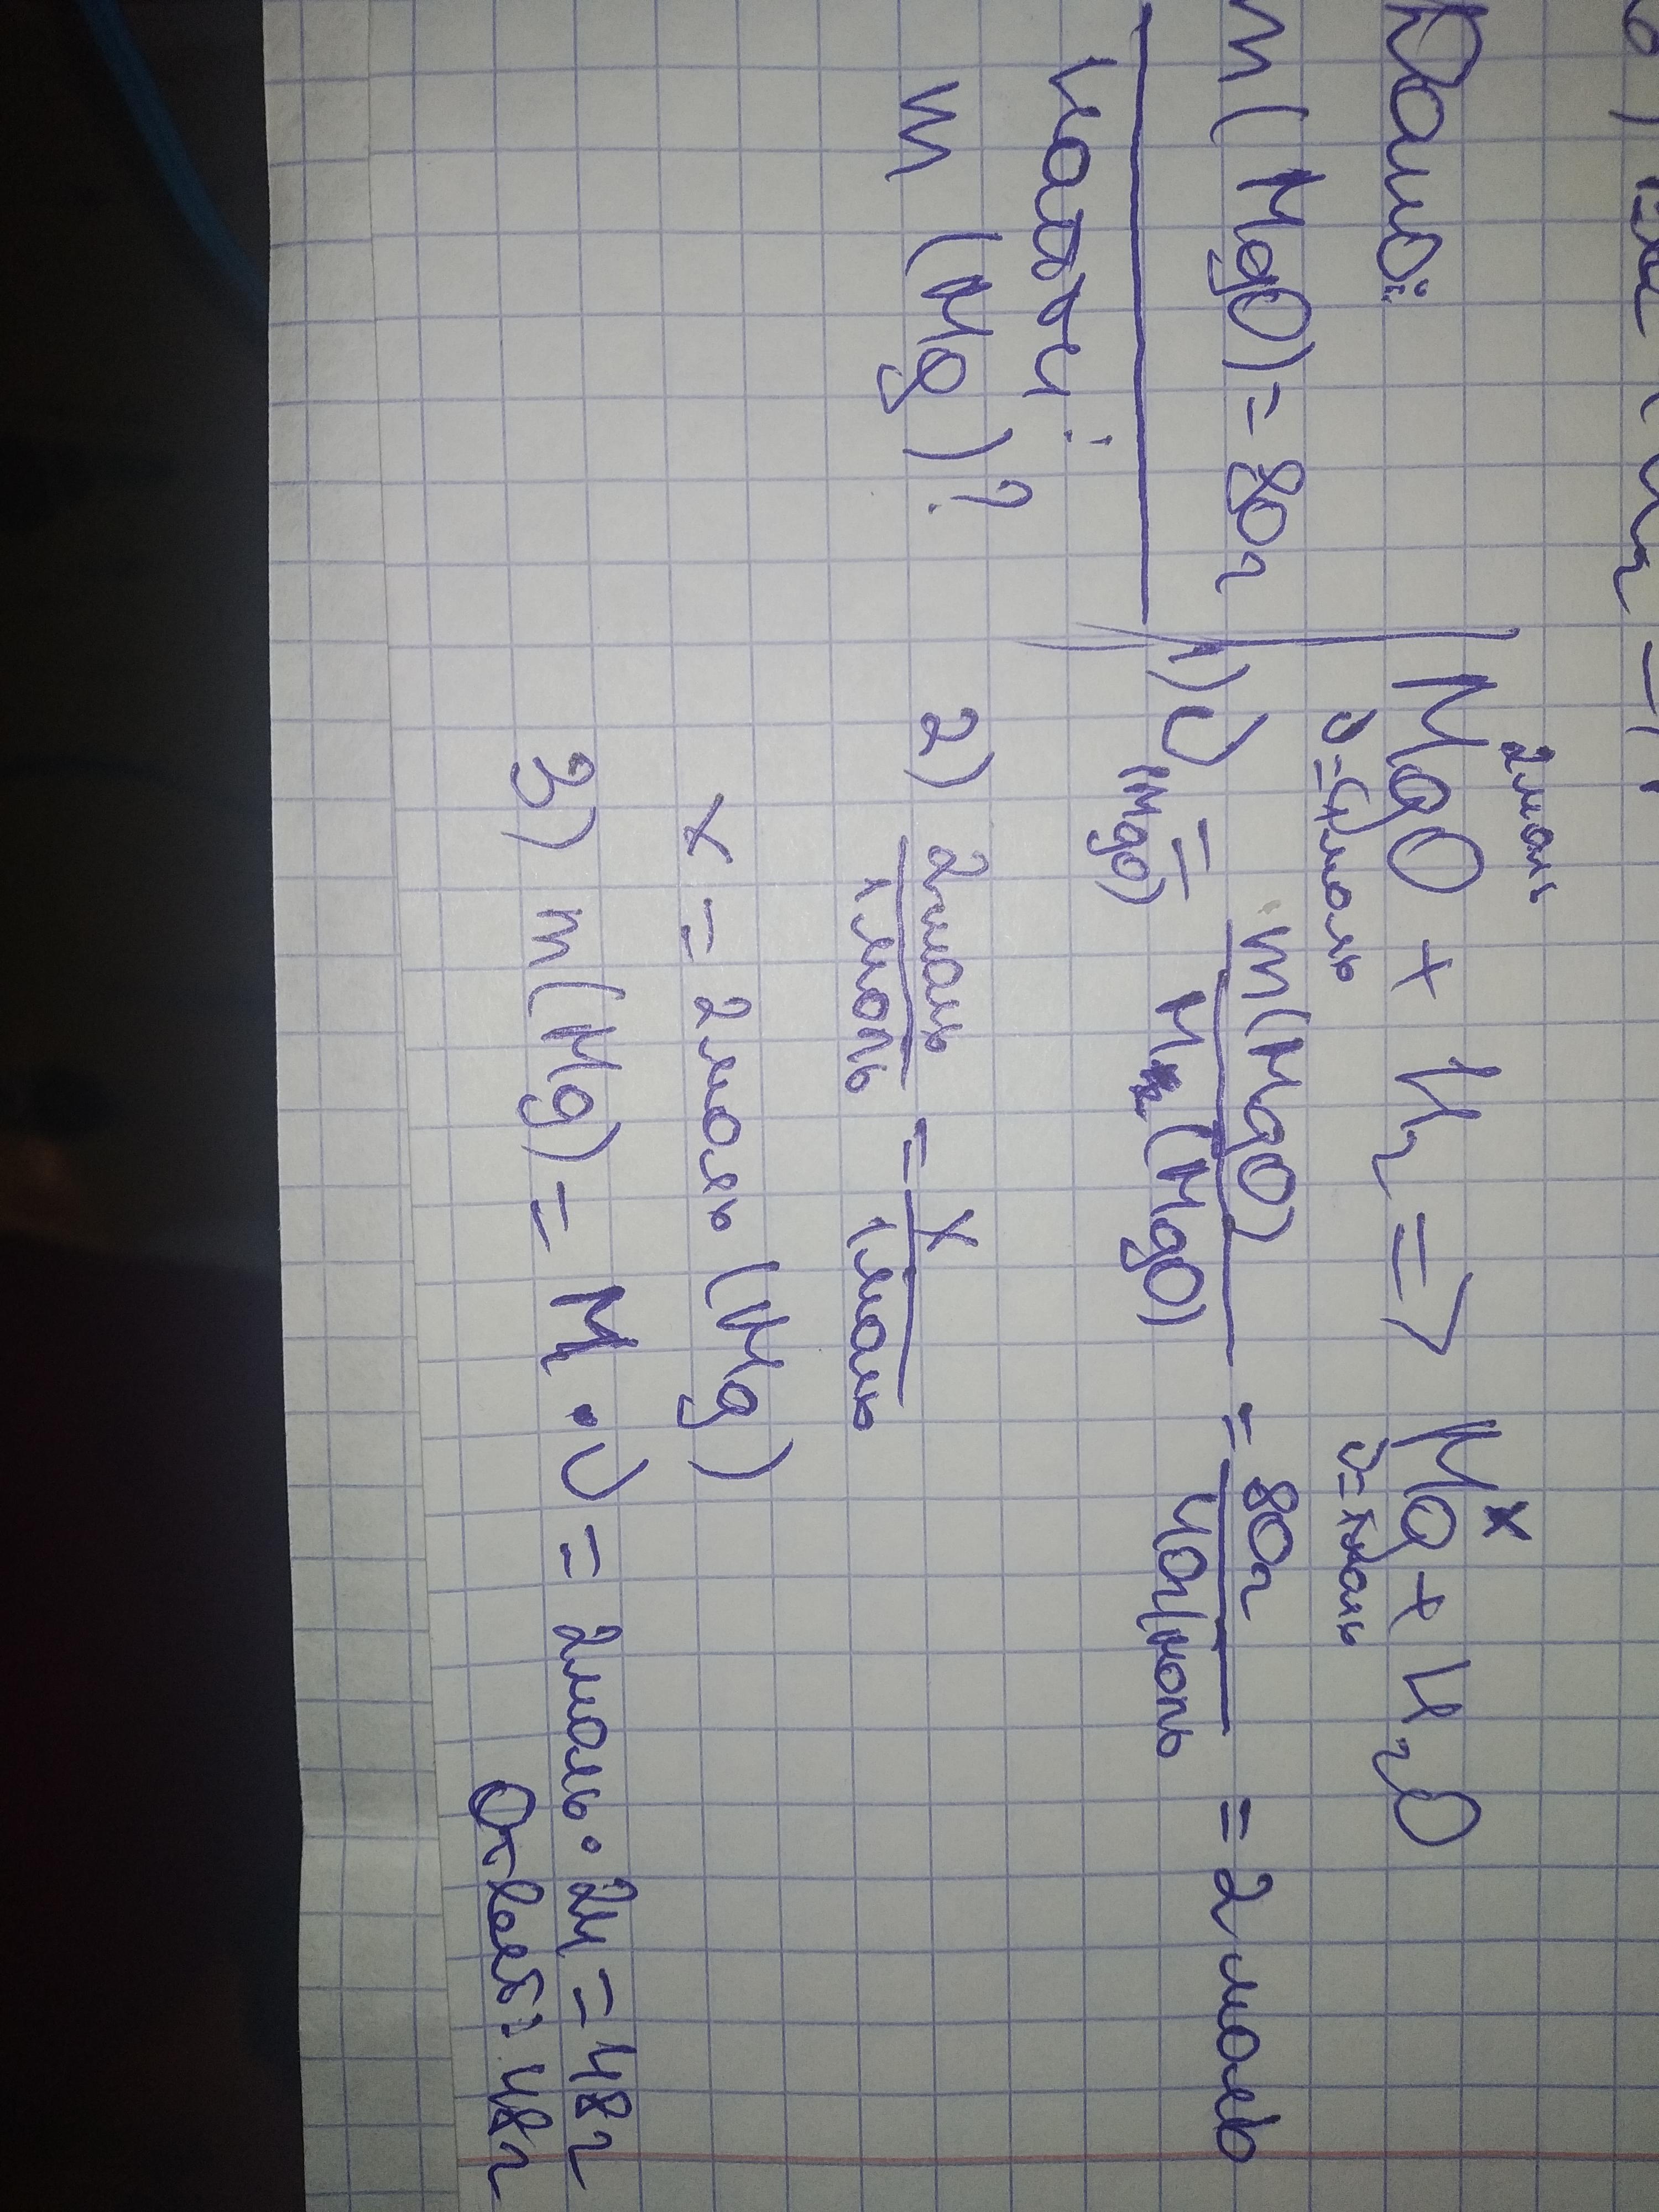 Дано:
m(MgO)=80г
Найти:
m (Mg)?
2моль x
MgO + H₂ => Mg + H₂O
υ=1моль υ=1моль
1) υ(MgO) = m(MgO)/M(MgO) = 80г/40г/моль = 2 моль
2) 2моль/1моль = x/1моль
x = 2моль (Mg)
3) m(Mg) = M • υ = 2моль • 24 = 48г
Ответ: 48г